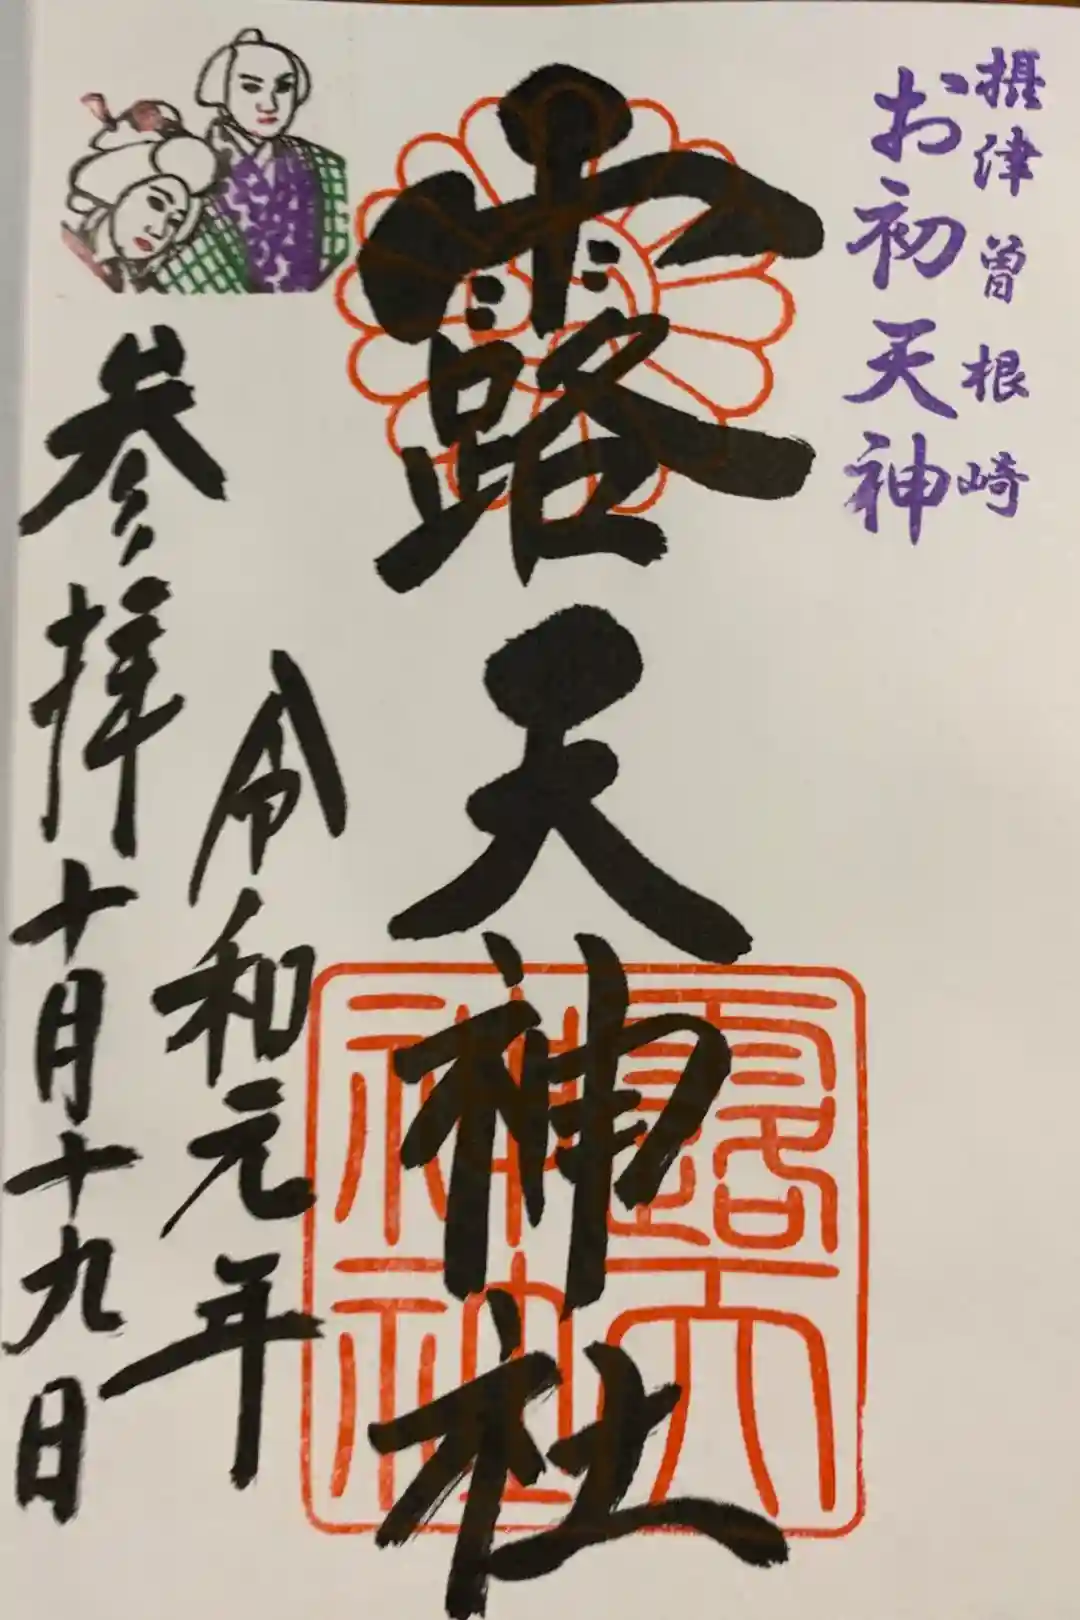 摂津曽根崎
お初天神
露天神社
露天
神社
令和元年
参拝十月十九日